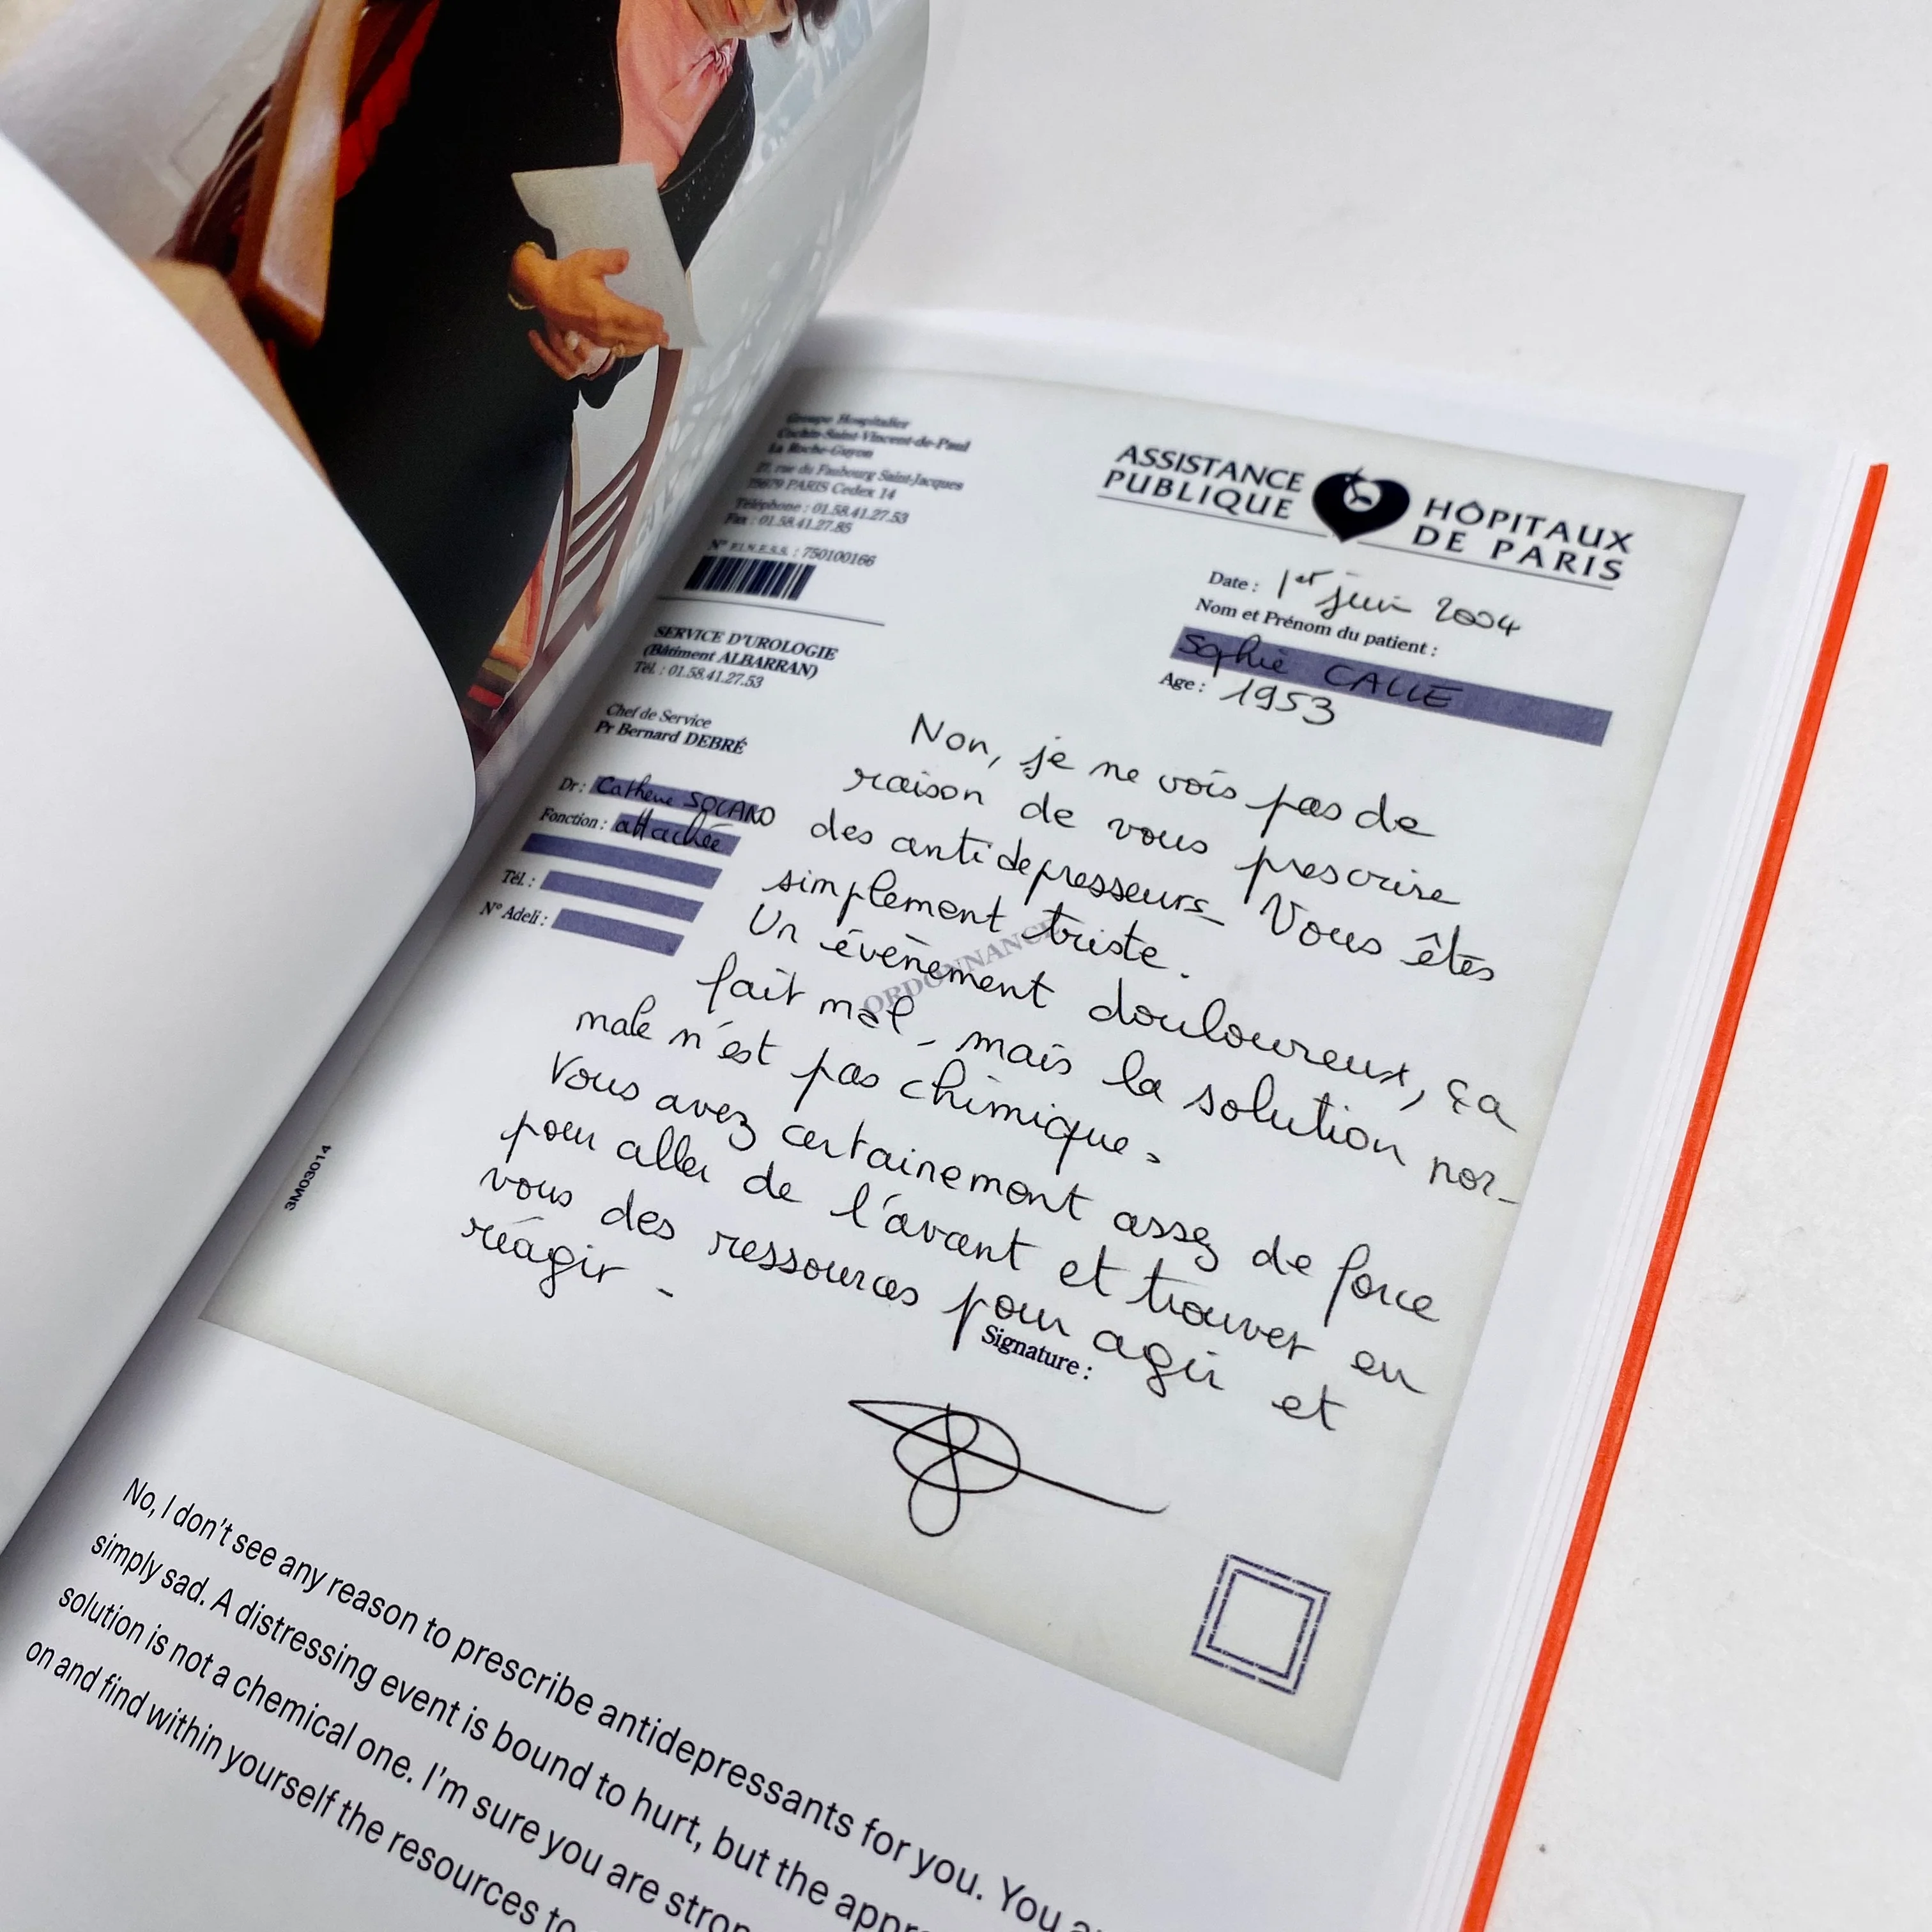 Groupe Hospitalier
Cochin-Saint-Vincent-de-Paul
La Roche-Guyon
27, rue du Faubourg Saint-Jacques
75679 PARIS Cedex 14
Téléphone : 01.58.41.27.53
Fax : 01.58.41.27.85
N° F.I.N.E.S.S. : 750100166
SERVICE D'UROLOGIE
(Bâtiment ALBARRAN)
Tél. : 01.58.41.27.53
Chef de Service
Pr Bernard DEBRÉ
Dr :
Fonction : attachée
Tél. :
N° Adeli :
ASSISTANCE
PUBLIQUE
HÔPITAUX
DE PARIS
Date : 1er juin 2004
Nom et Prénom du patient :
Sophie CALLE
Age : 1953
Non, je ne vois pas de
raison de vous prescrire
des antidepresseurs_ Vous êtes
simplement triste.
Un évènement douloureux, ça
fait mal, mais la solution nor-
male n'est pas chimique.
Vous avez certainement assez de force
pour aller de l'avant et trouver en
vous des ressources pour agir et
réagir -
ORDONNANCE
Signature :
3M03014
No, I don't see any reason to prescribe antidepressants for you. You
simply sad. A distressing event is bound to hurt, but the appr
solution is not a chemical one. I'm sure you are stron
on and find within yourself the resources to